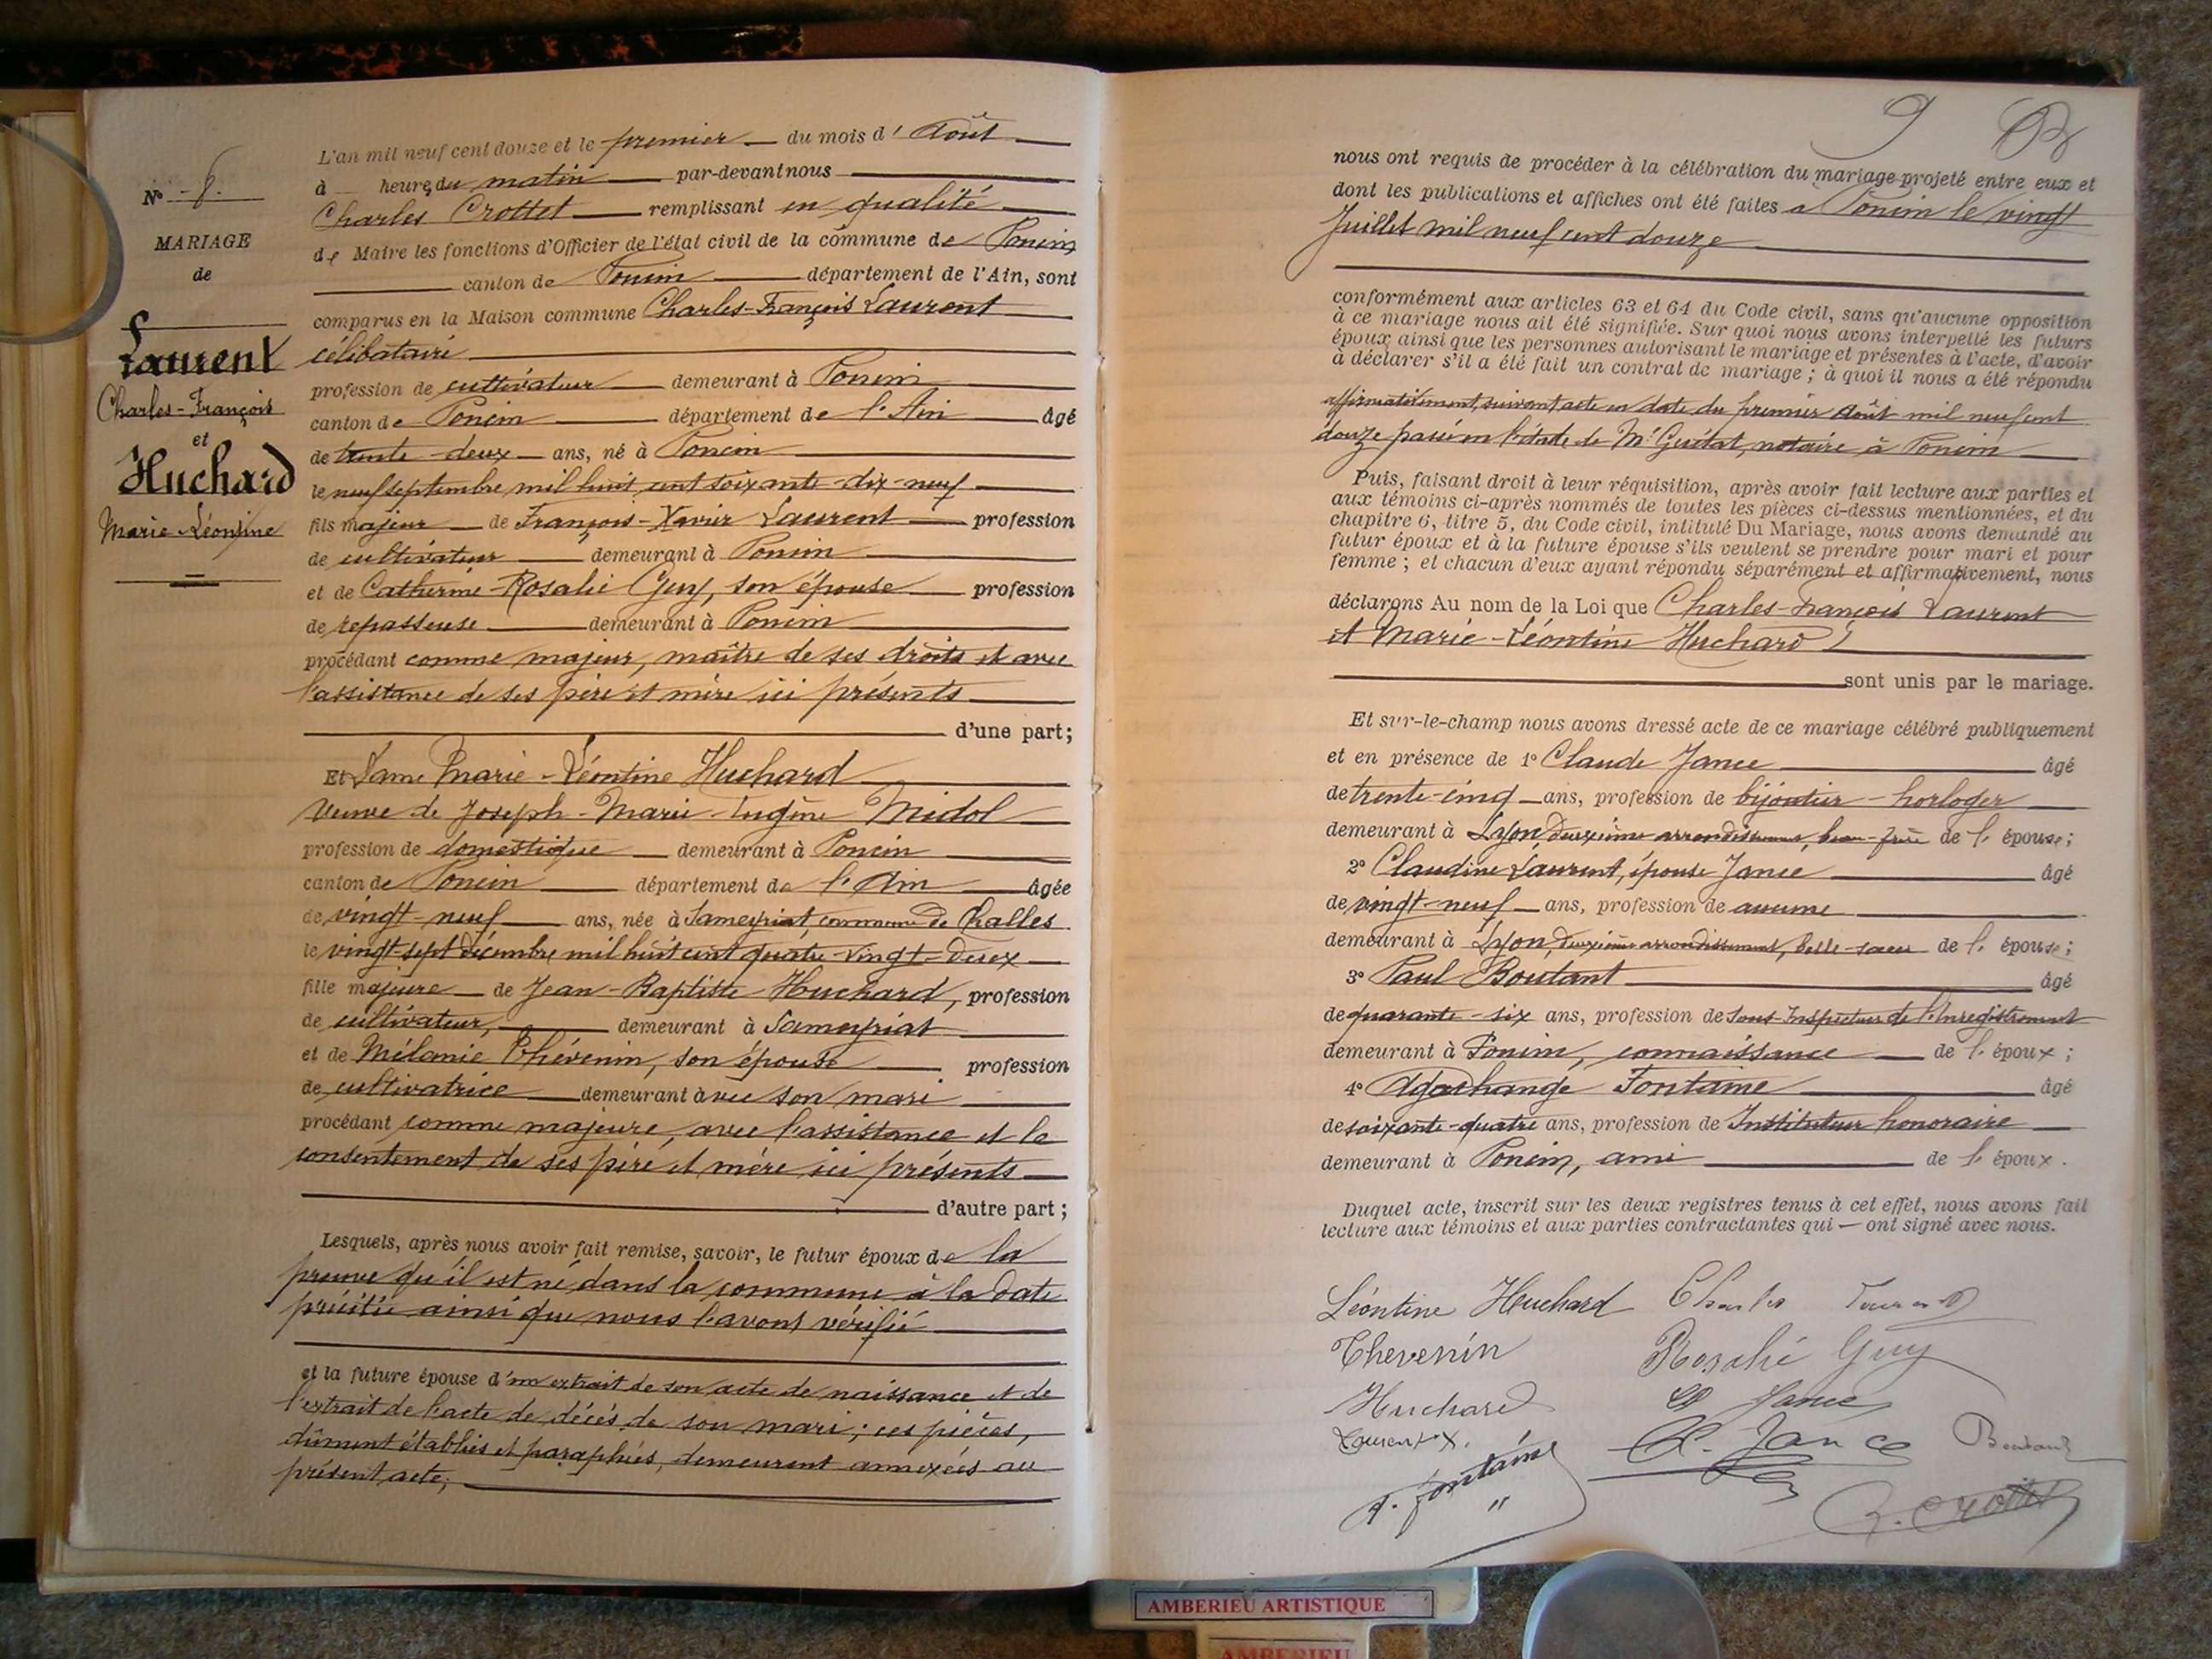 L'an mil neuf cent douze et le premier du mois d'Août
N° 8.
à heures du matin par-devant nous
Charles Crottet remplissant en qualité
MARIAGE
de Maire les fonctions d'Officier de l'état civil de la commune de Poncin
de
canton de Poncin département de l'Ain, sont
comparus en la Maison commune Charles-François Laurent
Laurent
célibataire
profession de cultivateur demeurant à Poncin
Charles-François
canton de Poncin département de l'Ain âgé
et
de trente-deux ans, né à Poncin
Huchard
le neuf septembre mil huit cent soixante-dix-neuf
Marie-Léontine
fils majeur de François-Xavier Laurent profession
de cultivateur demeurant à Poncin
et de Catherine-Rosalie Guy, son épouse profession
de repasseuse demeurant à Poncin
procédant comme majeur, maître de ses droits et avec
l'assistance de ses père et mère ici présents
d'une part;
Et Dame Marie-Léontine Huchard
veuve de Joseph-Marie-Eugène Midol
profession de domestique demeurant à Poncin
canton de Poncin département de l'Ain âgée
de vingt-neuf ans, née à Sameyriat, commune de Challes
le vingt-sept décembre mil huit cent quatre-vingt-deux
fille majeure de Jean-Baptiste Huchard, profession
de cultivateur, demeurant à Sameyriat
et de Mélanie Thévenin, son épouse profession
de cultivatrice demeurant avec son mari
procédant comme majeure, avec l'assistance et le
consentement de ses père et mère ici présents
d'autre part;
Lesquels, après nous avoir fait remise, savoir, le futur époux de la
preuve qu'il est né dans la commune à la date
précitée ainsi que nous l'avons vérifié
et la future épouse d'un extrait de son acte de naissance et de
l'extrait de l'acte de décès de son mari; ces pièces,
dûment établies et paraphées, demeurent annexées au
présent acte;
9
nous ont requis de procéder à la célébration du mariage projeté entre eux et
dont les publications et affiches ont été faites à Poncin le vingt
Juillet mil neuf cent douze
conformément aux articles 63 et 64 du Code civil, sans qu'aucune opposition
à ce mariage nous ait été signifiée. Sur quoi nous avons interpellé les futurs
époux ainsi que les personnes autorisant le mariage et présentes à l'acte, d'avoir
à déclarer s'il a été fait un contrat de mariage; à quoi il nous a été répondu
affirmativement, suivant acte en date du premier Août mil neuf cent
douze passé en l'étude de Me Guétat, notaire à Poncin
Puis, faisant droit à leur réquisition, après avoir fait lecture aux parties et
aux témoins ci-après nommés de toutes les pièces ci-dessus mentionnées, et du
chapitre 6, titre 5, du Code civil, intitulé Du Mariage, nous avons demandé au
futur époux et à la future épouse s'ils veulent se prendre pour mari et pour
femme; et chacun d'eux ayant répondu séparément et affirmativement, nous
déclarons Au nom de la Loi que Charles-François Laurent
et Marie-Léontine Huchard
sont unis par le mariage.
Et sur-le-champ nous avons dressé acte de ce mariage célébré publiquement
et en présence de 1° Claude Jance âgé
de trente-cinq ans, profession de bijoutier-horloger
demeurant à Lyon, deuxième arrondissement, beau-frère de l'épouse;
2° Claudine Laurent, épouse Jance âgé
de vingt-neuf ans, profession de aucune
demeurant à Lyon, deuxième arrondissement, belle-sœur de l'épouse;
3° Paul Boutant âgé
de quarante-six ans, profession de Sous-Inspecteur de l'Enregistrement
demeurant à Poncin, connaissance de l'époux;
4° Agathange Fontaine âgé
de soixante-quatre ans, profession de Instituteur honoraire
demeurant à Poncin, ami de l'époux.
Duquel acte, inscrit sur les deux registres tenus à cet effet, nous avons fait
lecture aux témoins et aux parties contractantes qui — ont signé avec nous.
Léontine Huchard Charles Laurent
Thevenin Rosalie Guy
Huchard Jance
Laurent X. C. Jance Boutant
A. Fontaine
C. Crottet
AMBERIEU ARTISTIQUE
AMBERIEU